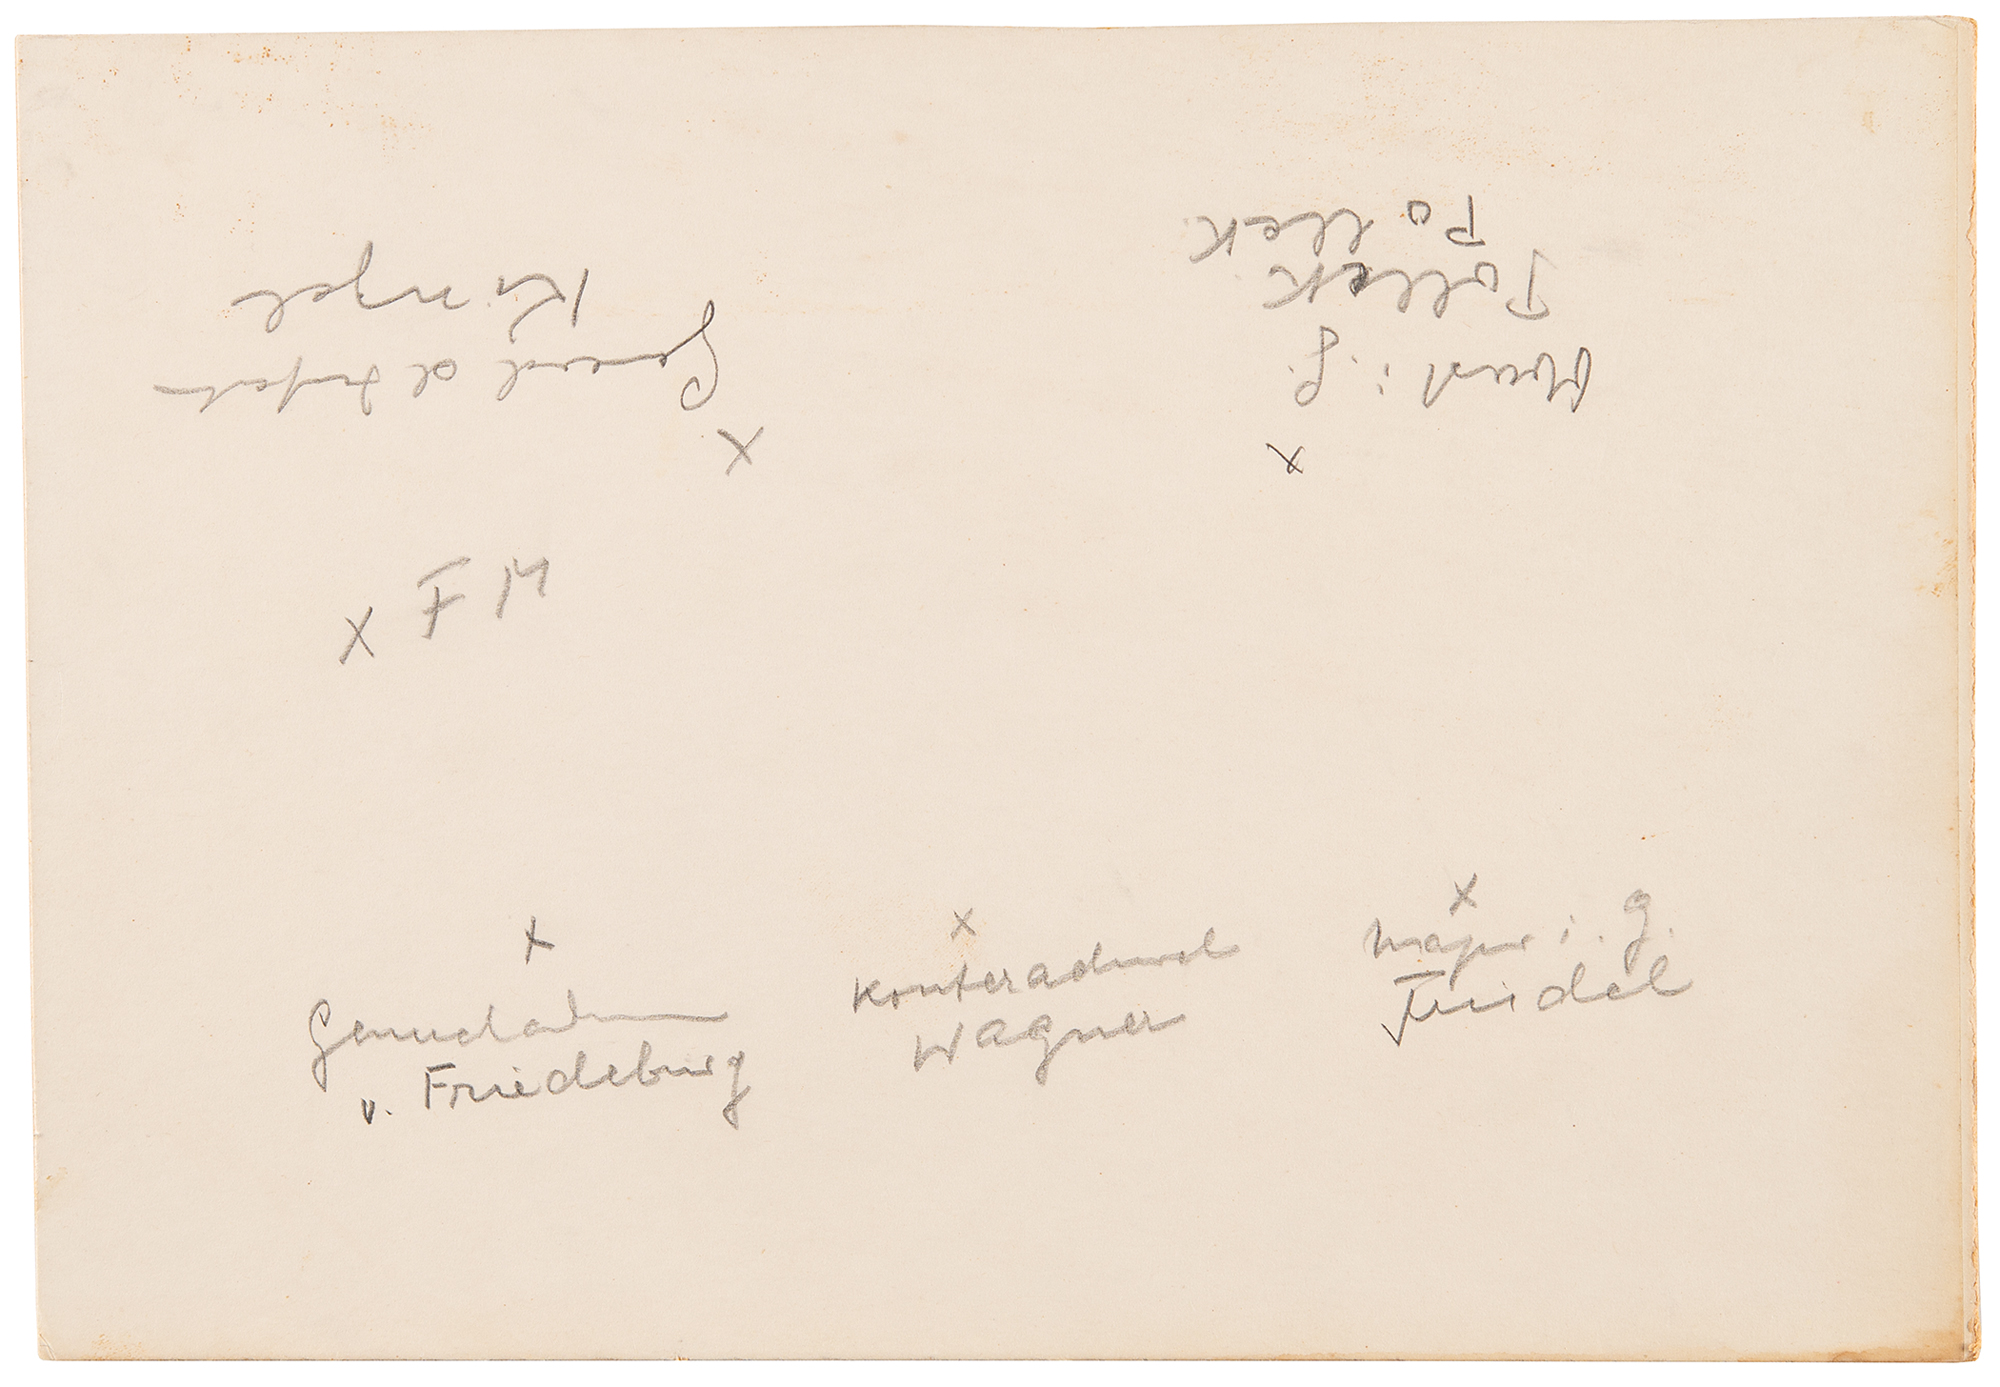 x
General d Infant
Kinzel
x
Oberst i. G.
Pollek
Pollek
x F M
x
Generaladm
v. Friedeburg
x
Konteradmiral
Wagner
x
Major i. G.
Friedel